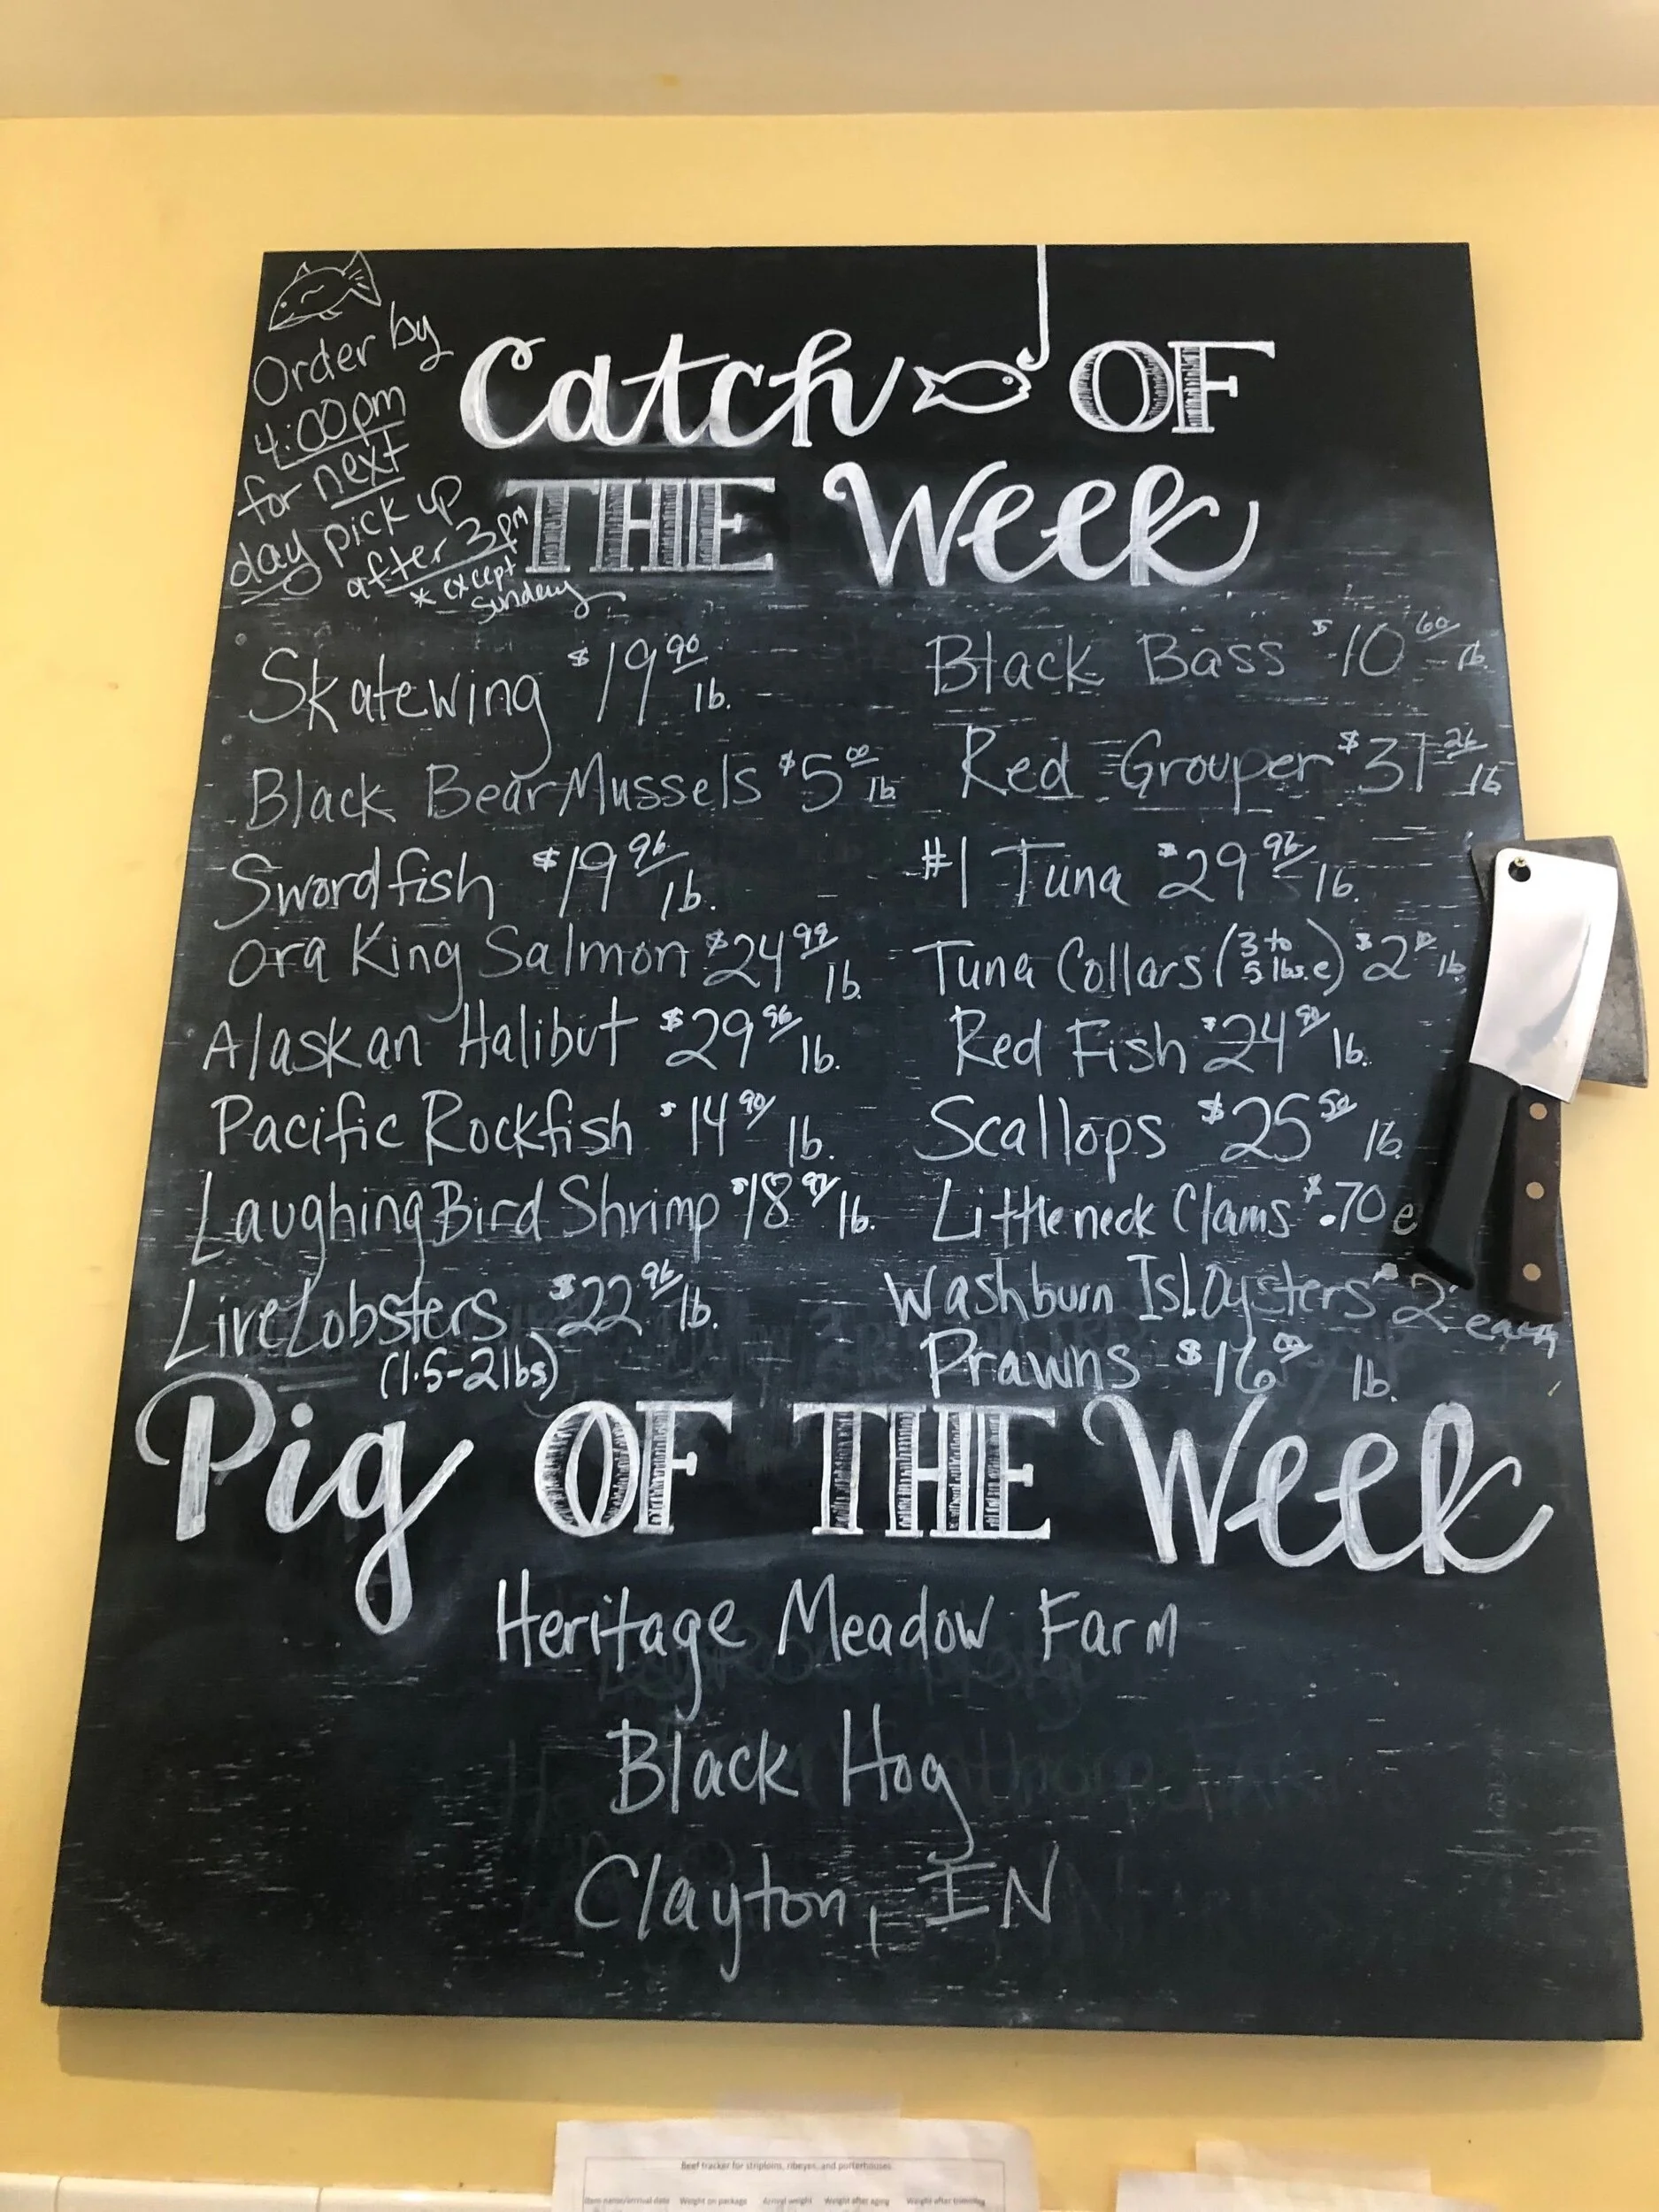 Order by
4:00pm
for next
day pick up
after 3pm
* except
sunday
Catch OF
THE Week
Skatewing $19 90 lb.
Black Bear Mussels $5 00 lb.
Swordfish $19 96 lb.
Ora King Salmon $24 99 lb.
Alaskan Halibut $29 96 lb.
Pacific Rockfish $14 90 lb.
Laughing Bird Shrimp $18 97 lb.
Live Lobsters $22 96 lb.
(1.5-2lbs)
Black Bass $10 60 lb.
Red Grouper $31 26 lb
#1 Tuna $29 96 lb.
Tuna Collars (3 to 5 lbs. e) $2 lb
Red Fish $24 90 lb.
Scallops $25 50 lb.
Littleneck Clams $.70 e
Washburn Isl. Oysters $2 each
Prawns $16 00 lb.
Pig OF THE Week
Heritage Meadow Farm
Black Hog
Clayton, IN
Beef tracker for striploins, ribeyes, and porterhouses
Item name/arrival date Weight on package Arrival weight Weight after aging Weight after trimming